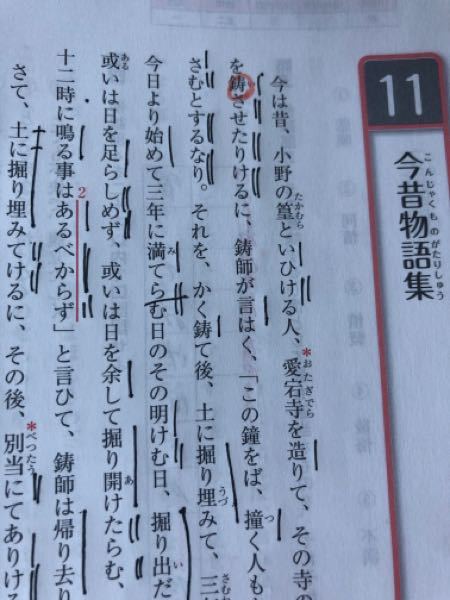 11
こんじゃくものがたりしゅう
今昔物語集
たかむら *おたぎでら
今は昔、小野の篁といひける人、愛宕寺を造りて、その寺の
つ
を鋳させたりけるに、鋳師が言はく、「この鐘をば、撞く人も
うづ
さむとするなり。それを、かく鋳て後、土に掘り埋みて、三
み い
今日より始めて三年に満てらむ日のその明けむ日、掘り出だ
ある あ
或いは日を足らしめず、或いは日を余して掘り開けたらむ、
2
十二時に鳴る事はあるべからず」と言ひて、鋳師は帰り去り
*べつたう
さて、土に掘り埋みてけるに、その後、別当にてありける